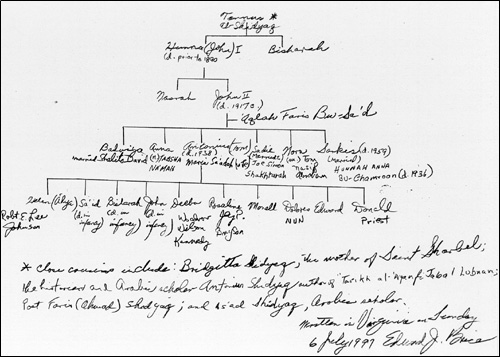 Tannus *
El-Shidyaq
Hanna (John) I
(d. prior to 1890
Bisharah
Nasrah
John II
(d. 1917?)
Aglah Faris Bu-Sa'd
Badwiya
married Shalita David
Anna
NAMAN
Antoinist
(d. 1938)
Marie Sa'idah
Sadie
Married
Joe Simon
Shakhturah
Nora
(m) Tony
Nasif
Abraham
Sarkis (d. 1959)
(married)
HUNNAH ANNA
BU-Chamoon (d. 1936)
Helen (Alyce)
Robt E. Lee
Johnson
Sa'id
(d. in
infancy)
Bisharah
(d. in
infancy)
John
(d. in
infancy)
Delba
Woodrow
Wilson
Kennedy
Rosaling
Jos. P.
Bryson
Monell
Dolores
NUN
Edward
Donald
Priest
* Close cousins include: Bridgitta Shidyaq, the mother of Saint Sharbel;
the historian and Arabic scholar Antonius Shidyaq author of "Tarikh al-Ayan fi Jabal Lubnan;
Poet Faris (Ahmad) Shidyaq; and As'ad Shidyaq, Arabic scholar.
Written in Virginia on Sunday
6 July 1997 Edward J. Brice